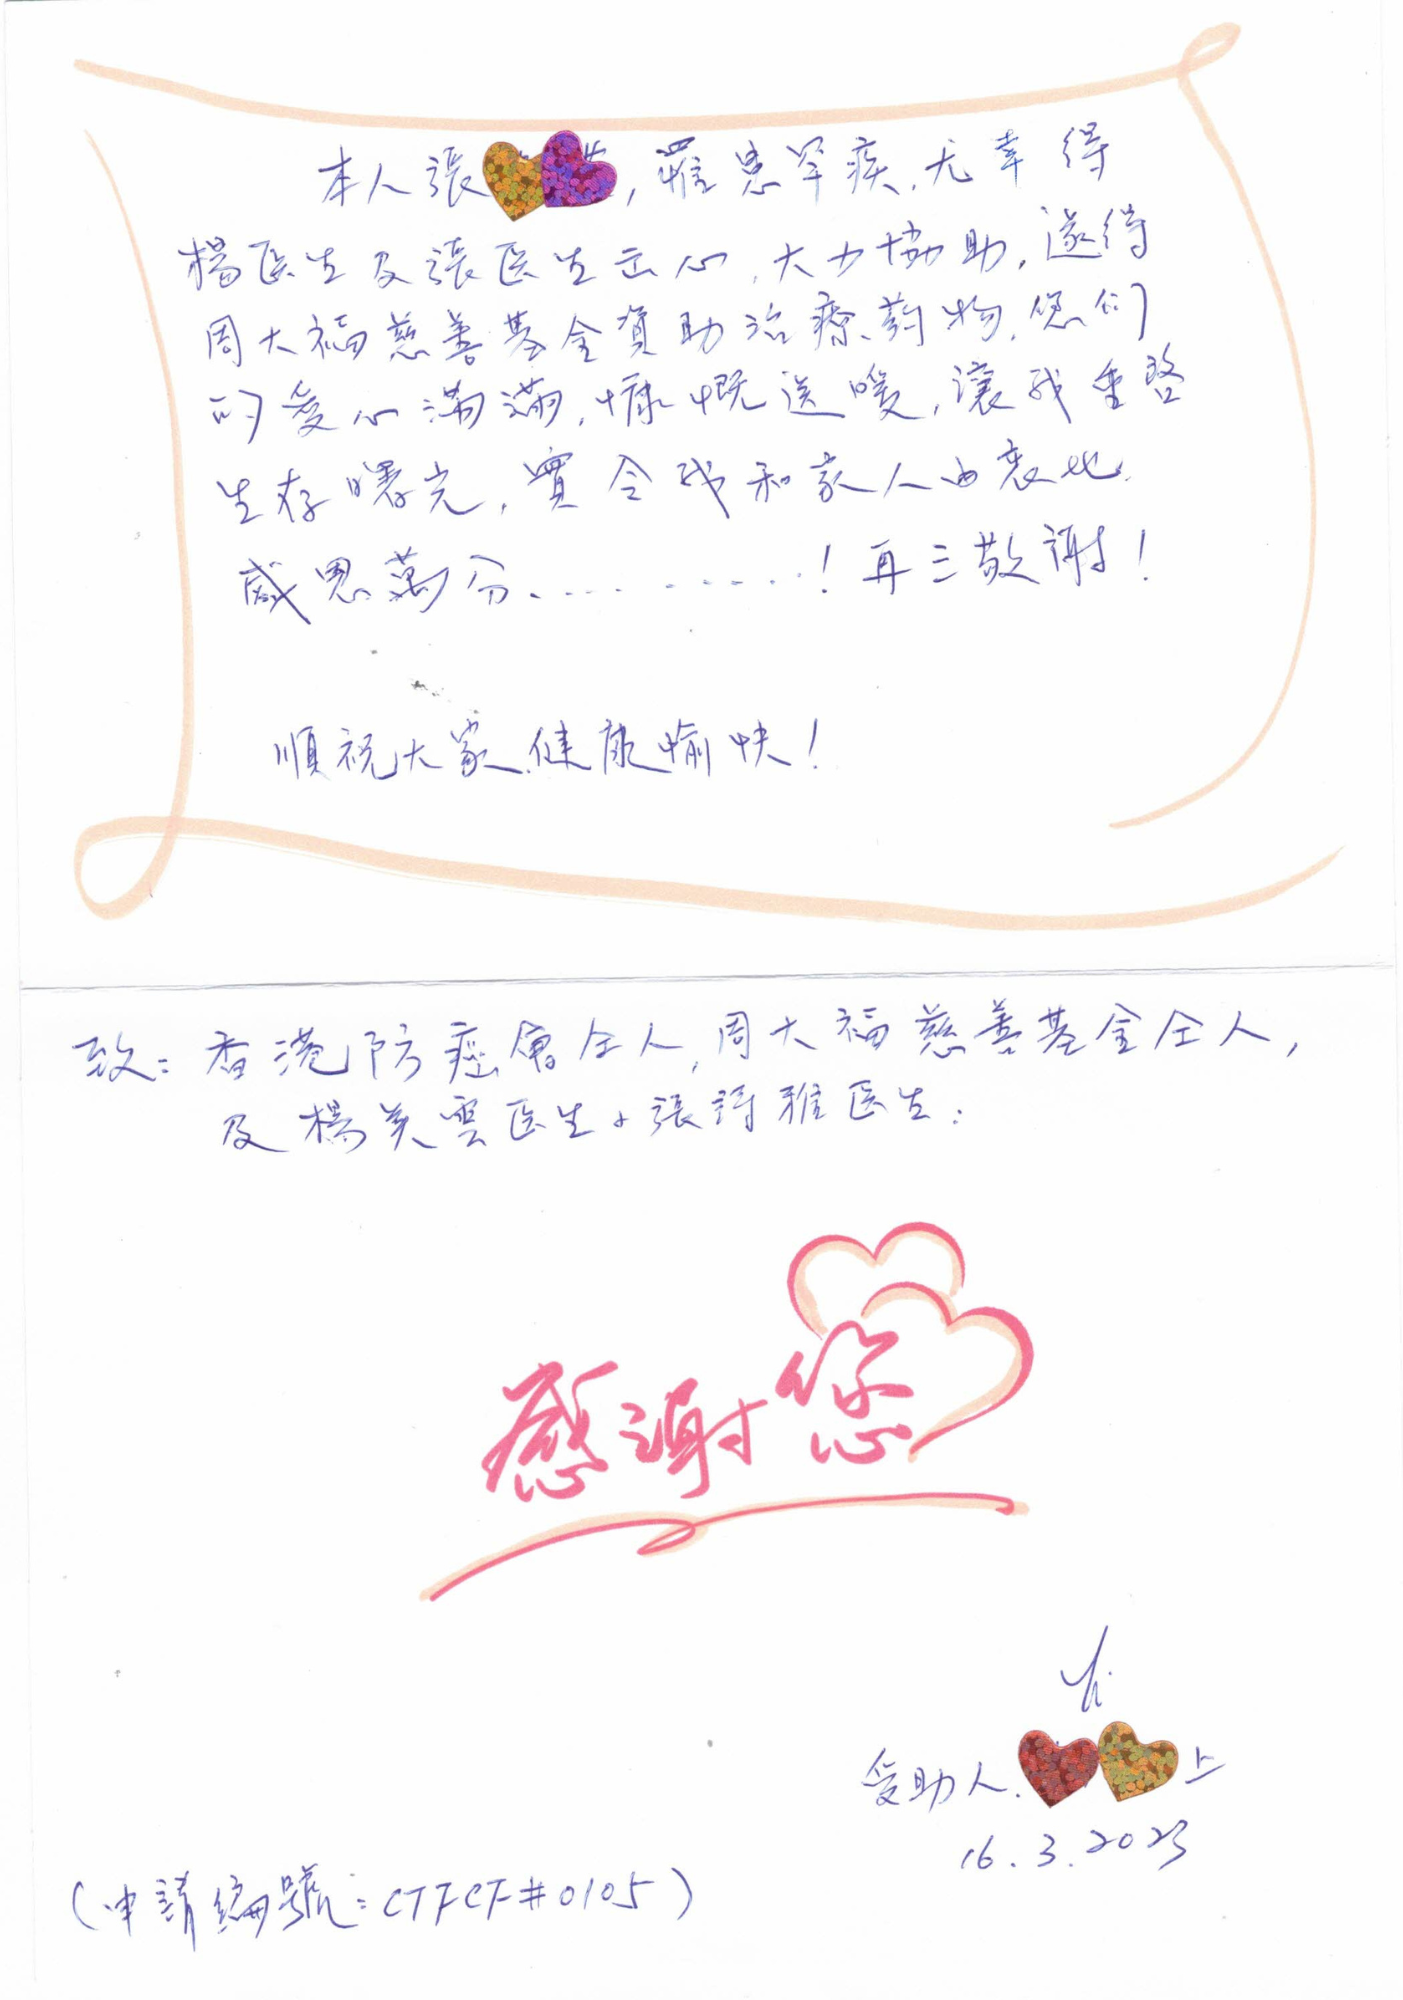 本人張，罹患罕疾，尤幸得
楊医生及張医生齐心，大力協助，遂得
周大福慈善基金資助治療葯物，您们
的愛心滿滿，慷慨送暖，讓我重啓
生存曙光，實令我和家人由衷地
感恩萬分..........！再三敬謝！
順祝大家健康愉快！
致：香港防癌會仝人，周大福慈善基金仝人，
及楊美雲医生、張詩雅医生：
感謝您
受助人 上
16.3.2023
（申請編號：CTFCF#0105）